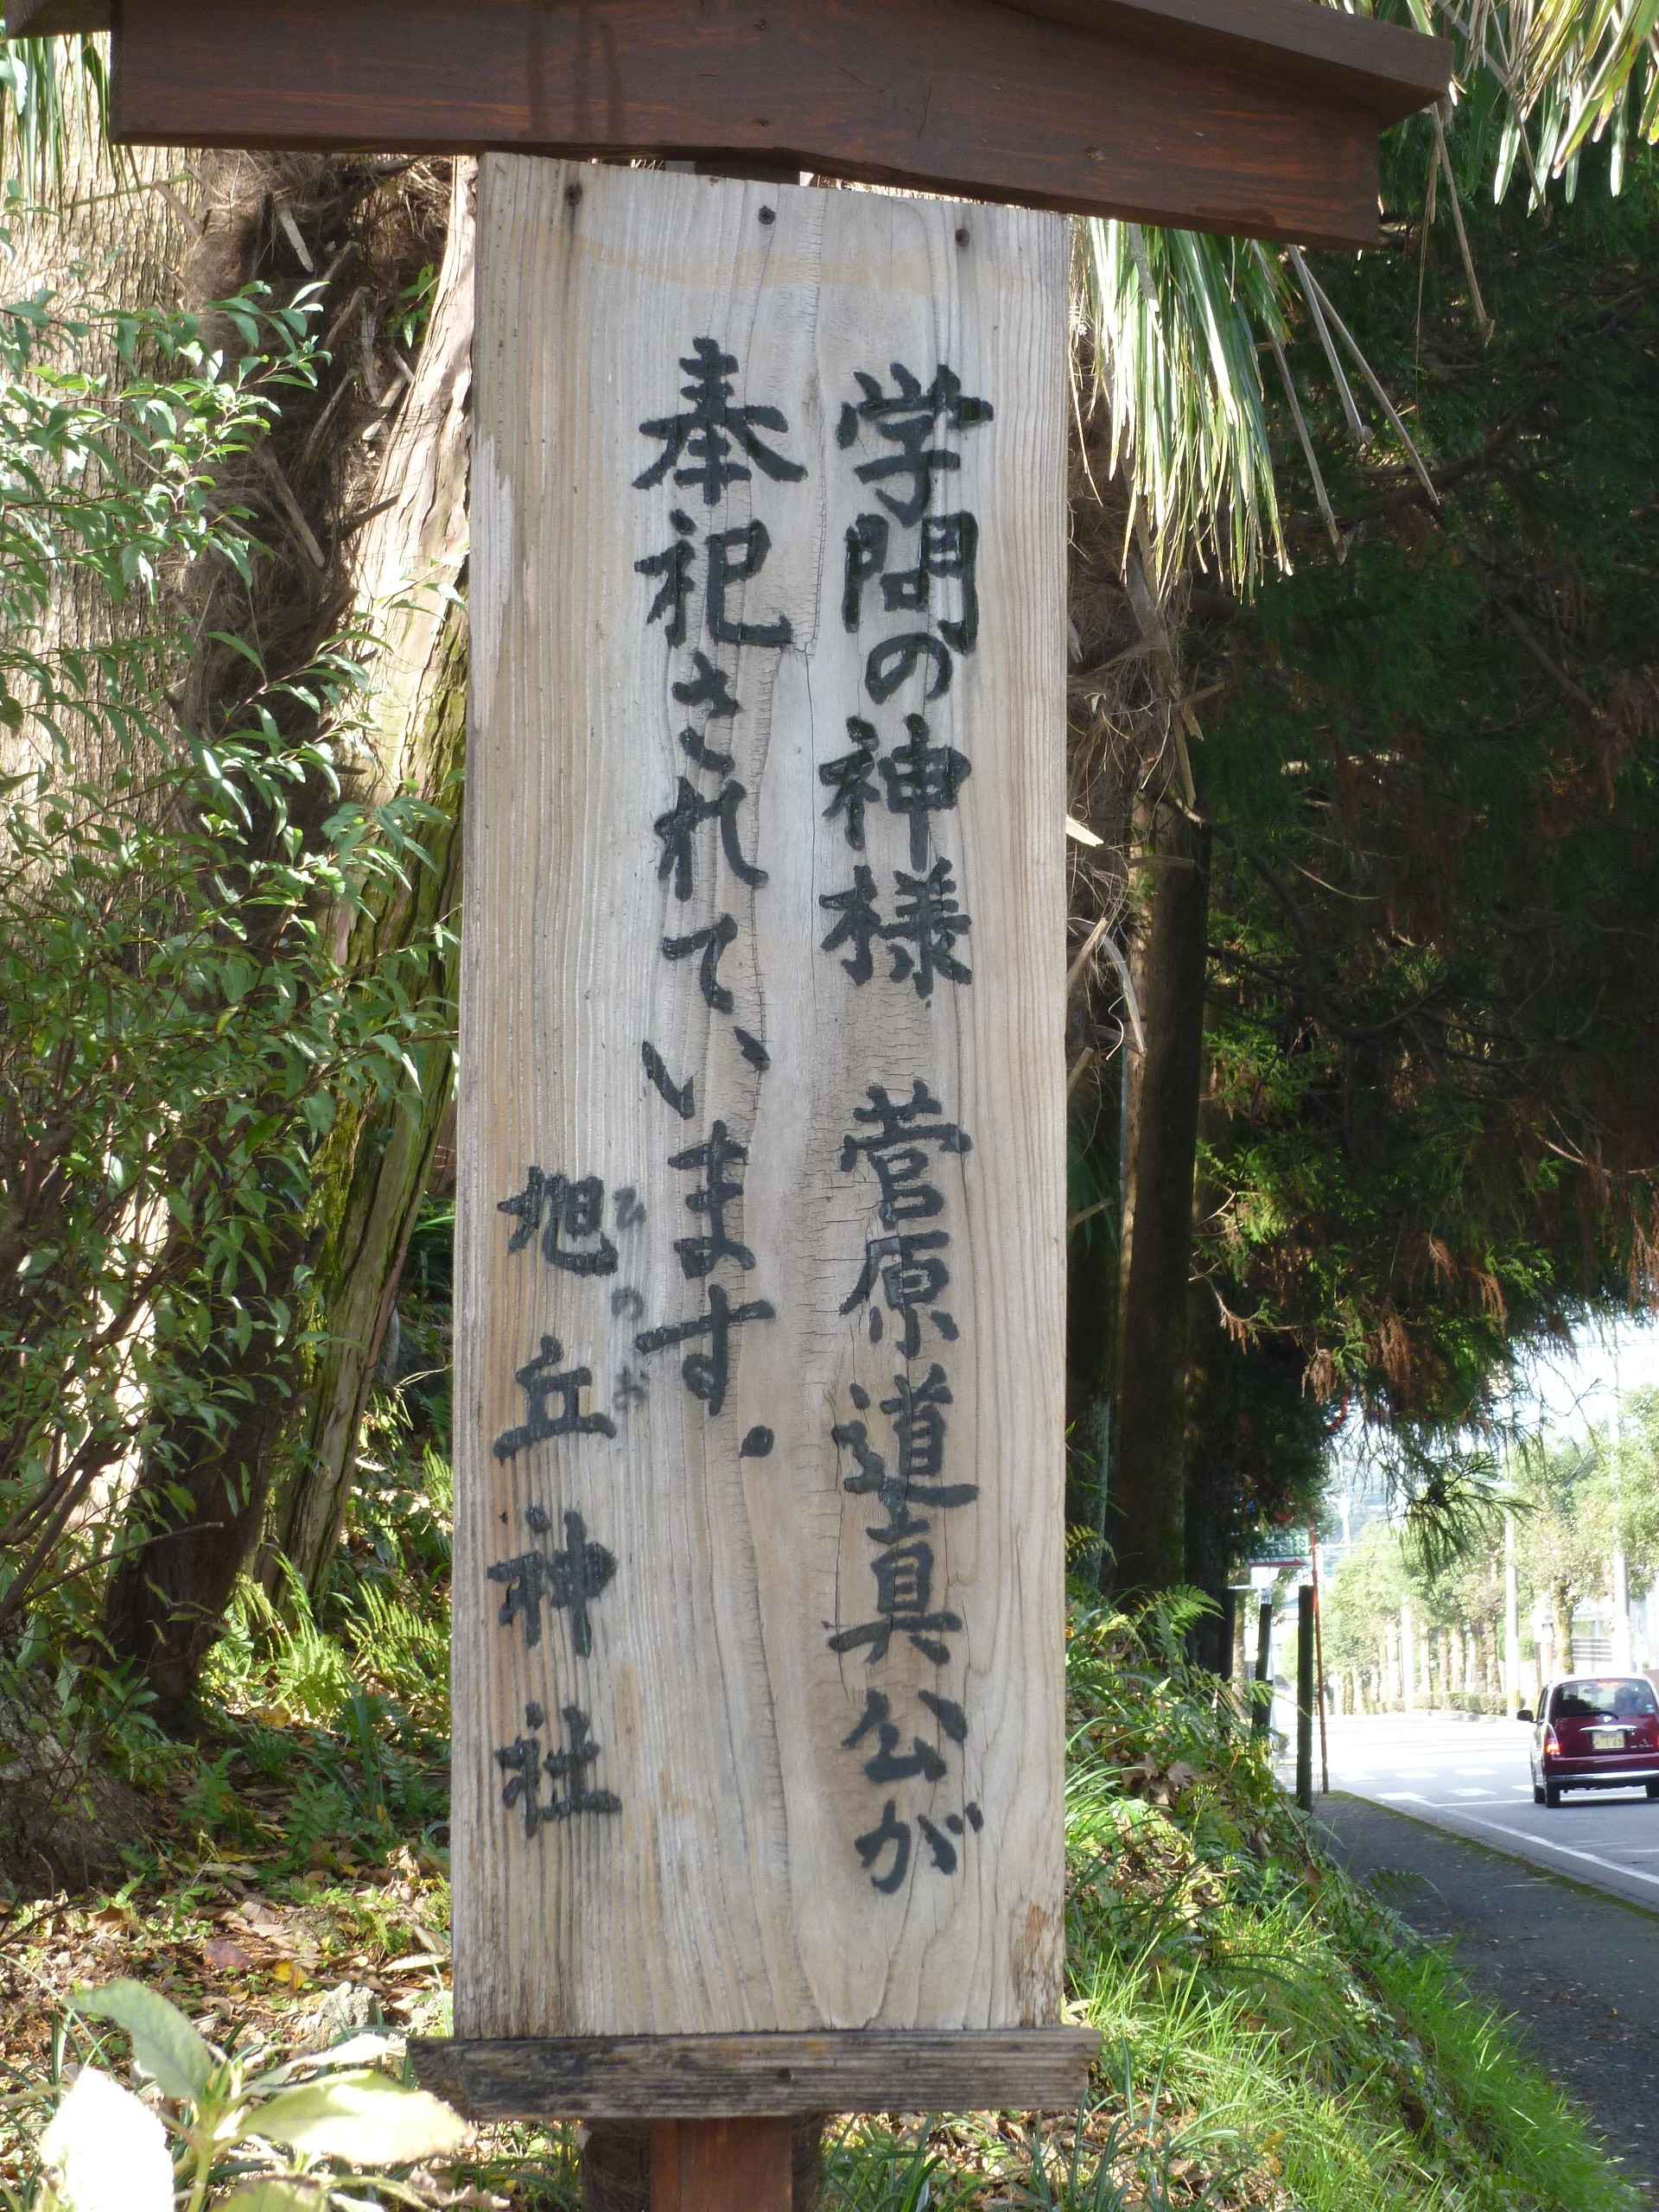 学問の神様　菅原道真公が
奉祀されています.
旭丘神社
ひのお